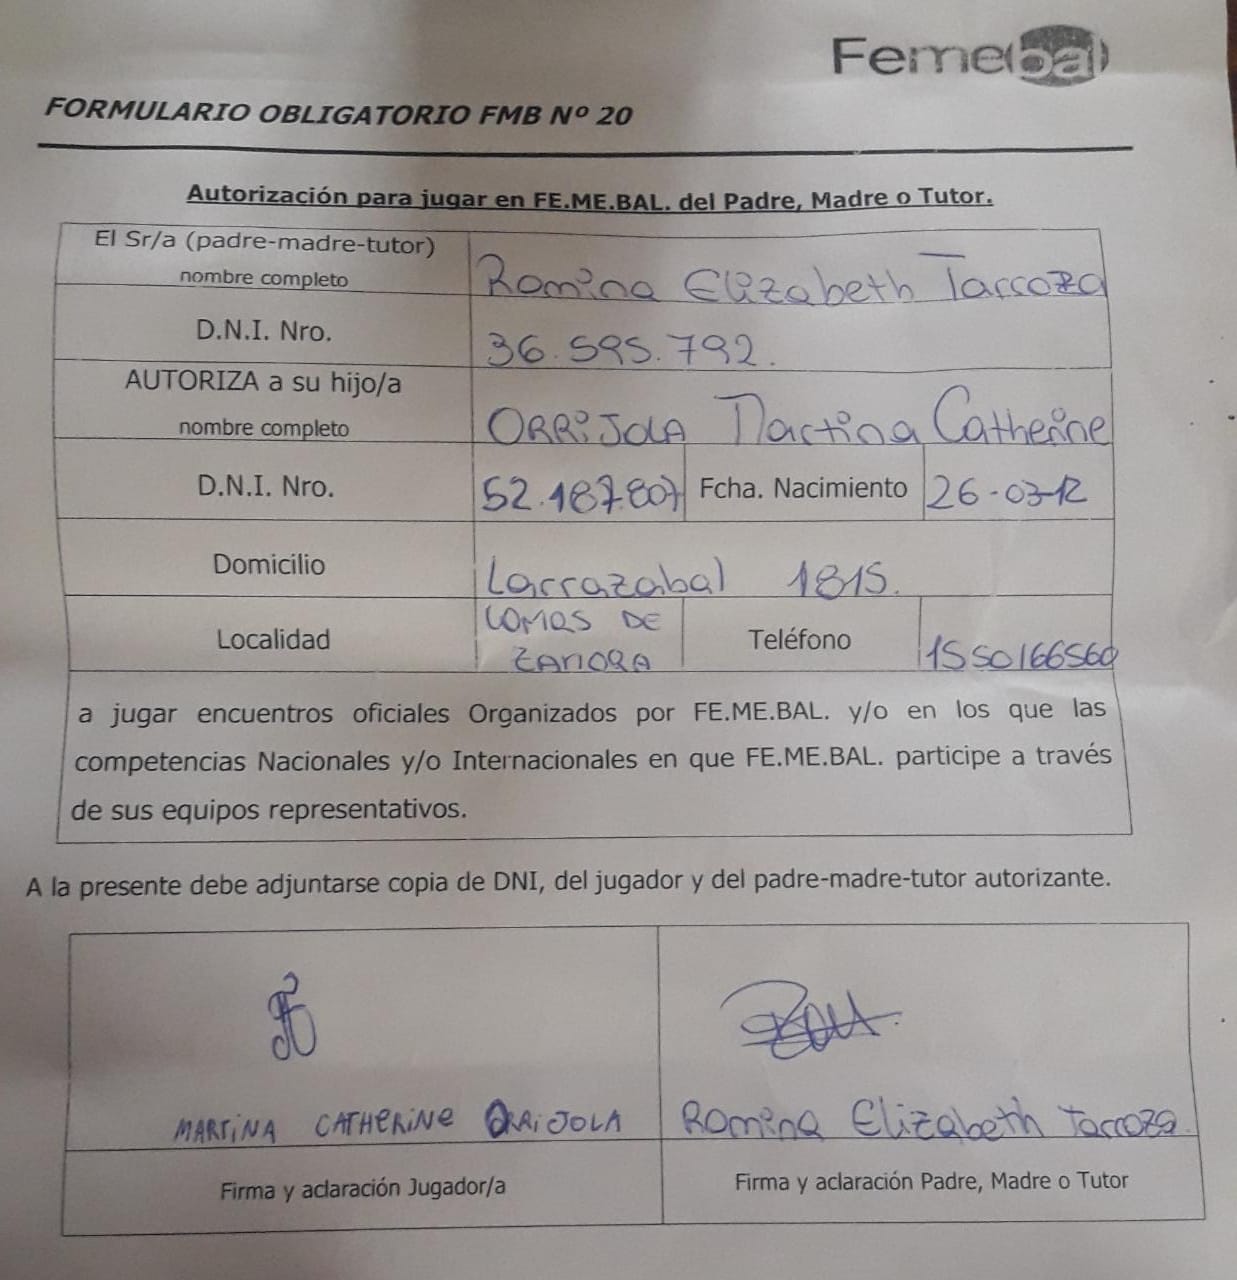 Femebal
FORMULARIO OBLIGATORIO FMB Nº 20
Autorización para jugar en FE.ME.BAL. del Padre, Madre o Tutor.
El Sr/a (padre-madre-tutor)
nombre completo
Romina Elizabeth Tarroza
D.N.I. Nro.
36.595.792.
AUTORIZA a su hijo/a
nombre completo
ORRiJOLA Martina Catherine
D.N.I. Nro.
52.187.807
Fcha. Nacimiento
26-03-12
Domicilio
Larrazabal 1815.
Localidad
LOMAS DE
ZAMORA
Teléfono
1550166560
a jugar encuentros oficiales Organizados por FE.ME.BAL. y/o en los que las
competencias Nacionales y/o Internacionales en que FE.ME.BAL. participe a través
de sus equipos representativos.
A la presente debe adjuntarse copia de DNI, del jugador y del padre-madre-tutor autorizante.
MARTiNA CATHERiNe ORRiJOLA
Romina Elizabeth Tarroza.
Firma y aclaración Jugador/a
Firma y aclaración Padre, Madre o Tutor